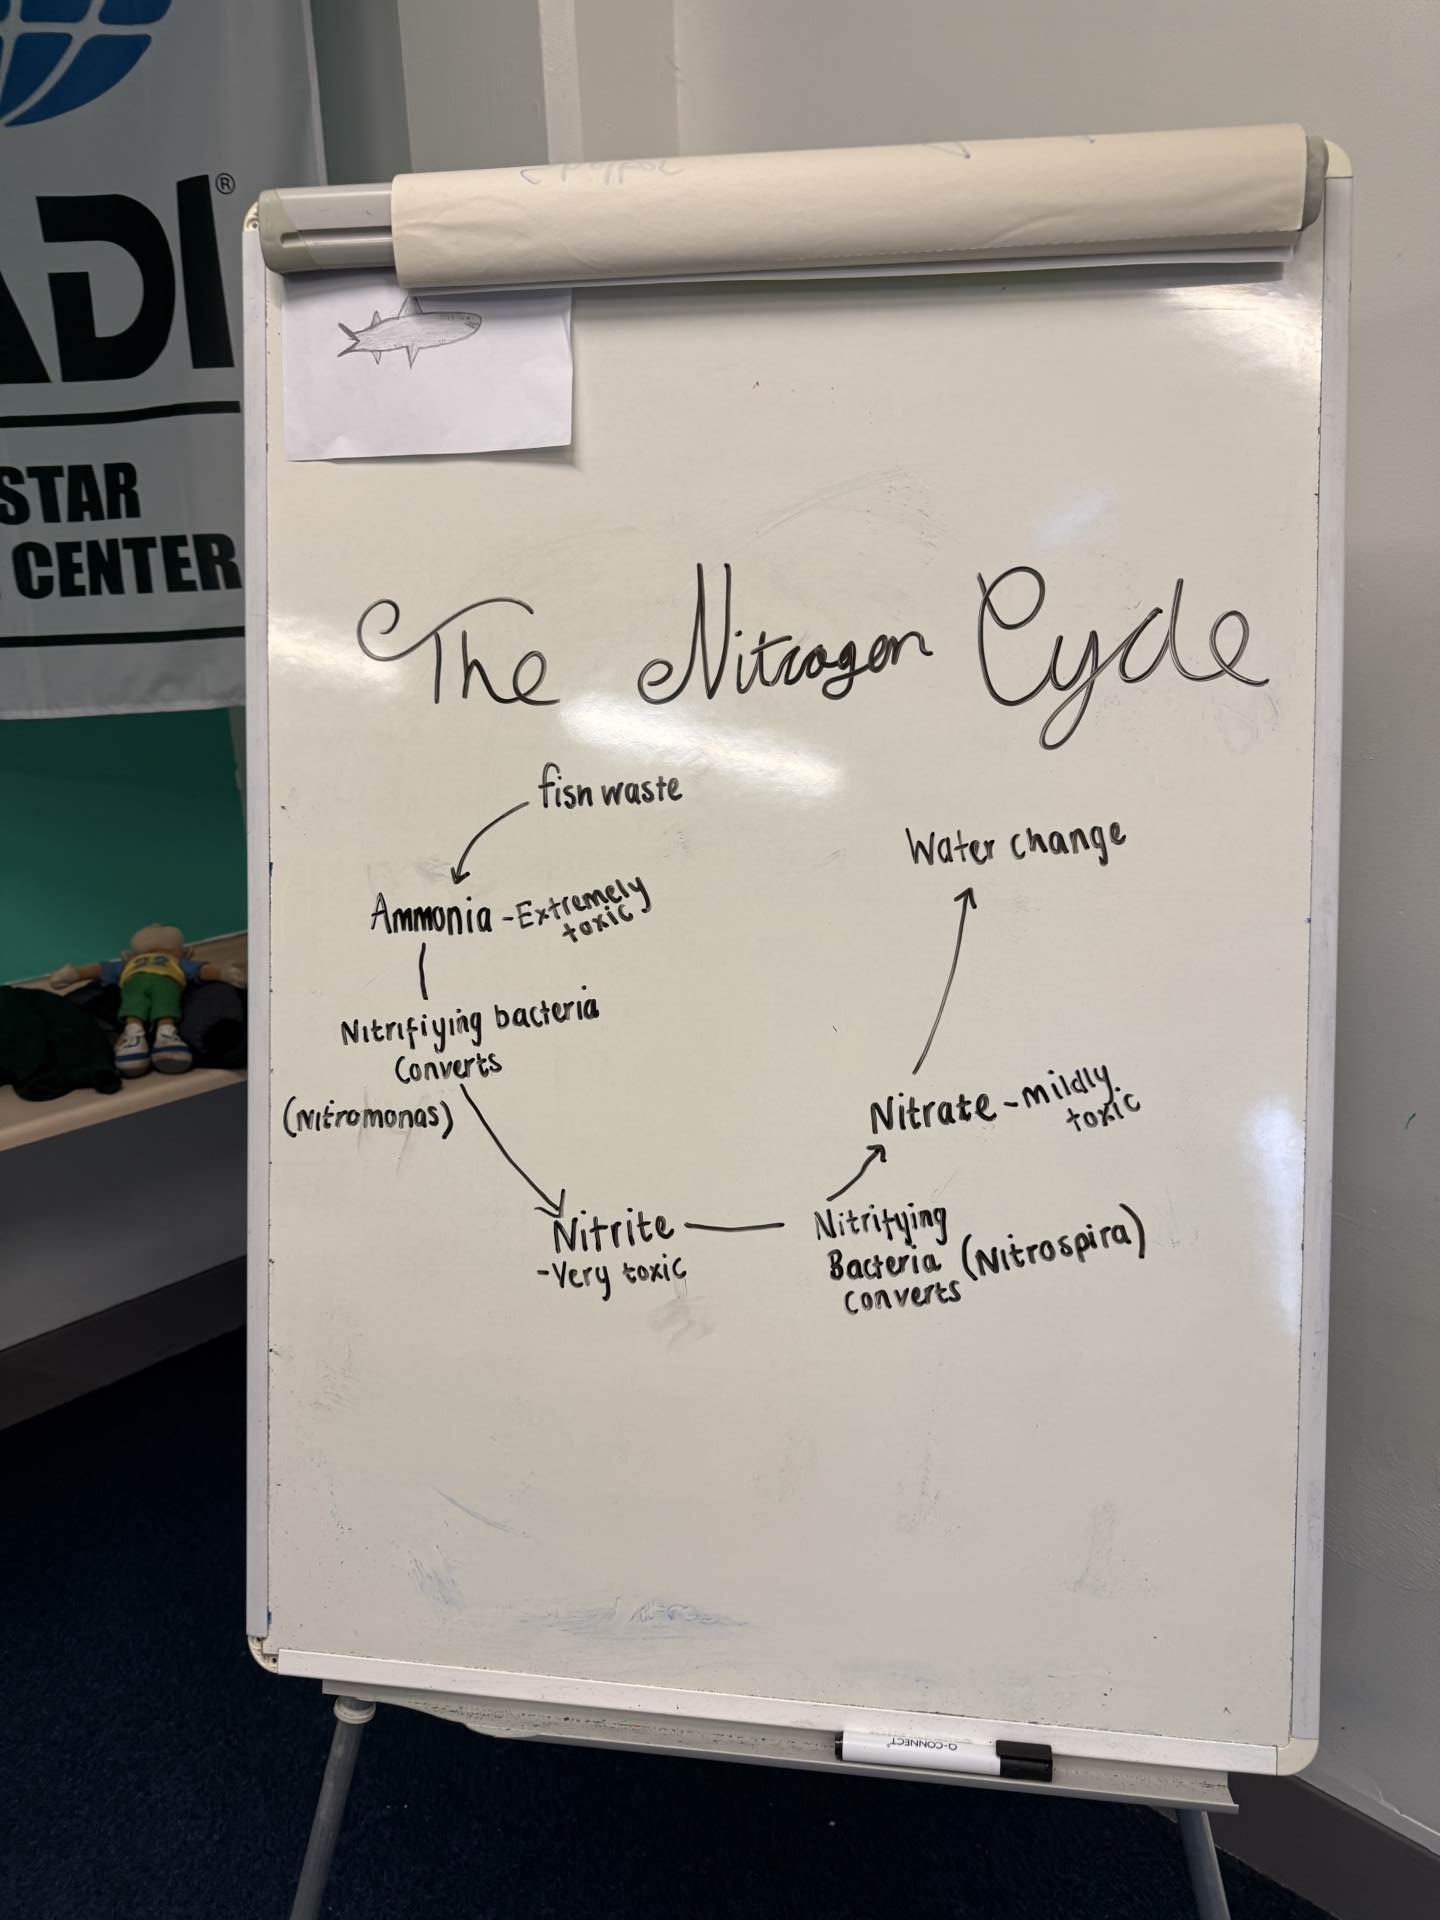 ADI®
STAR
CENTER
The Nitrogen Cycle
fish waste
Ammonia - Extremely
toxic
Nitrifiying bacteria
converts
(Nitromonas)
Nitrite
- Very toxic
Nitrifying
Bacteria (Nitrospira)
converts
Nitrate - mildly
toxic
Water change
Q-CONNECT